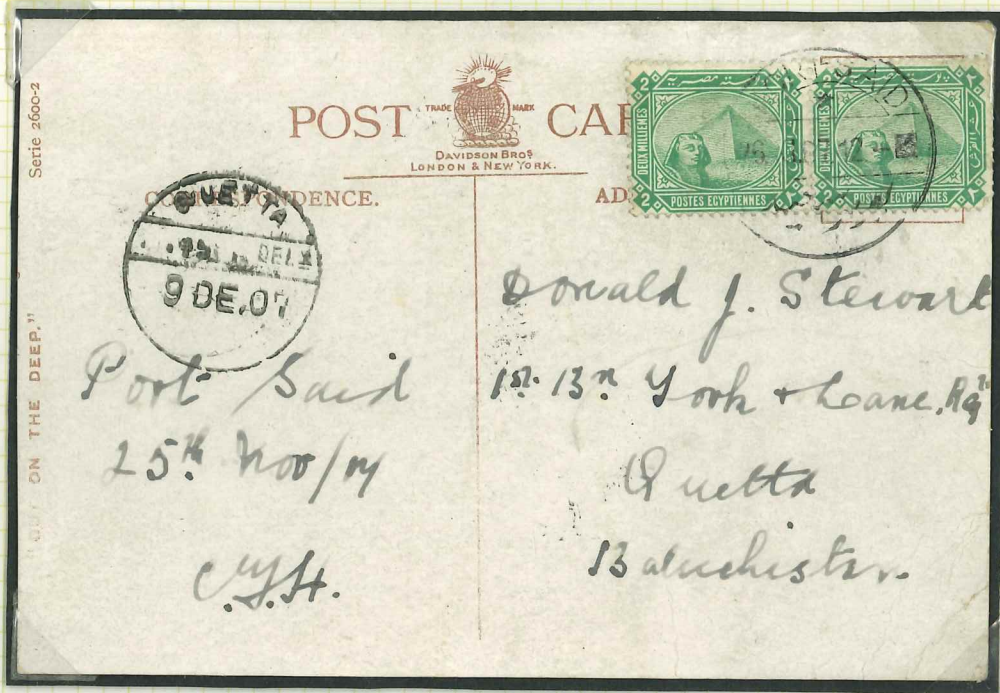 Serie 2600-2
"OUT ON THE DEEP."
POST CAR
TRADE MARK
DAVIDSON BROS
LONDON & NEW YORK.
CORRESPONDENCE.
AD
2 2
بوستة مصرية
DEUX MILLIEMES
2 POSTES EGYPTIENNES 2
DEUX MILLIEMES
2 POSTES EGYPTIENNES
SAID
QUETTA
DEL
9 DE.07
Port Said
25th Nov/07
Donald J. Stewart
1st. Bn York & Lanc. Regt
Quetta
Baluchistan.